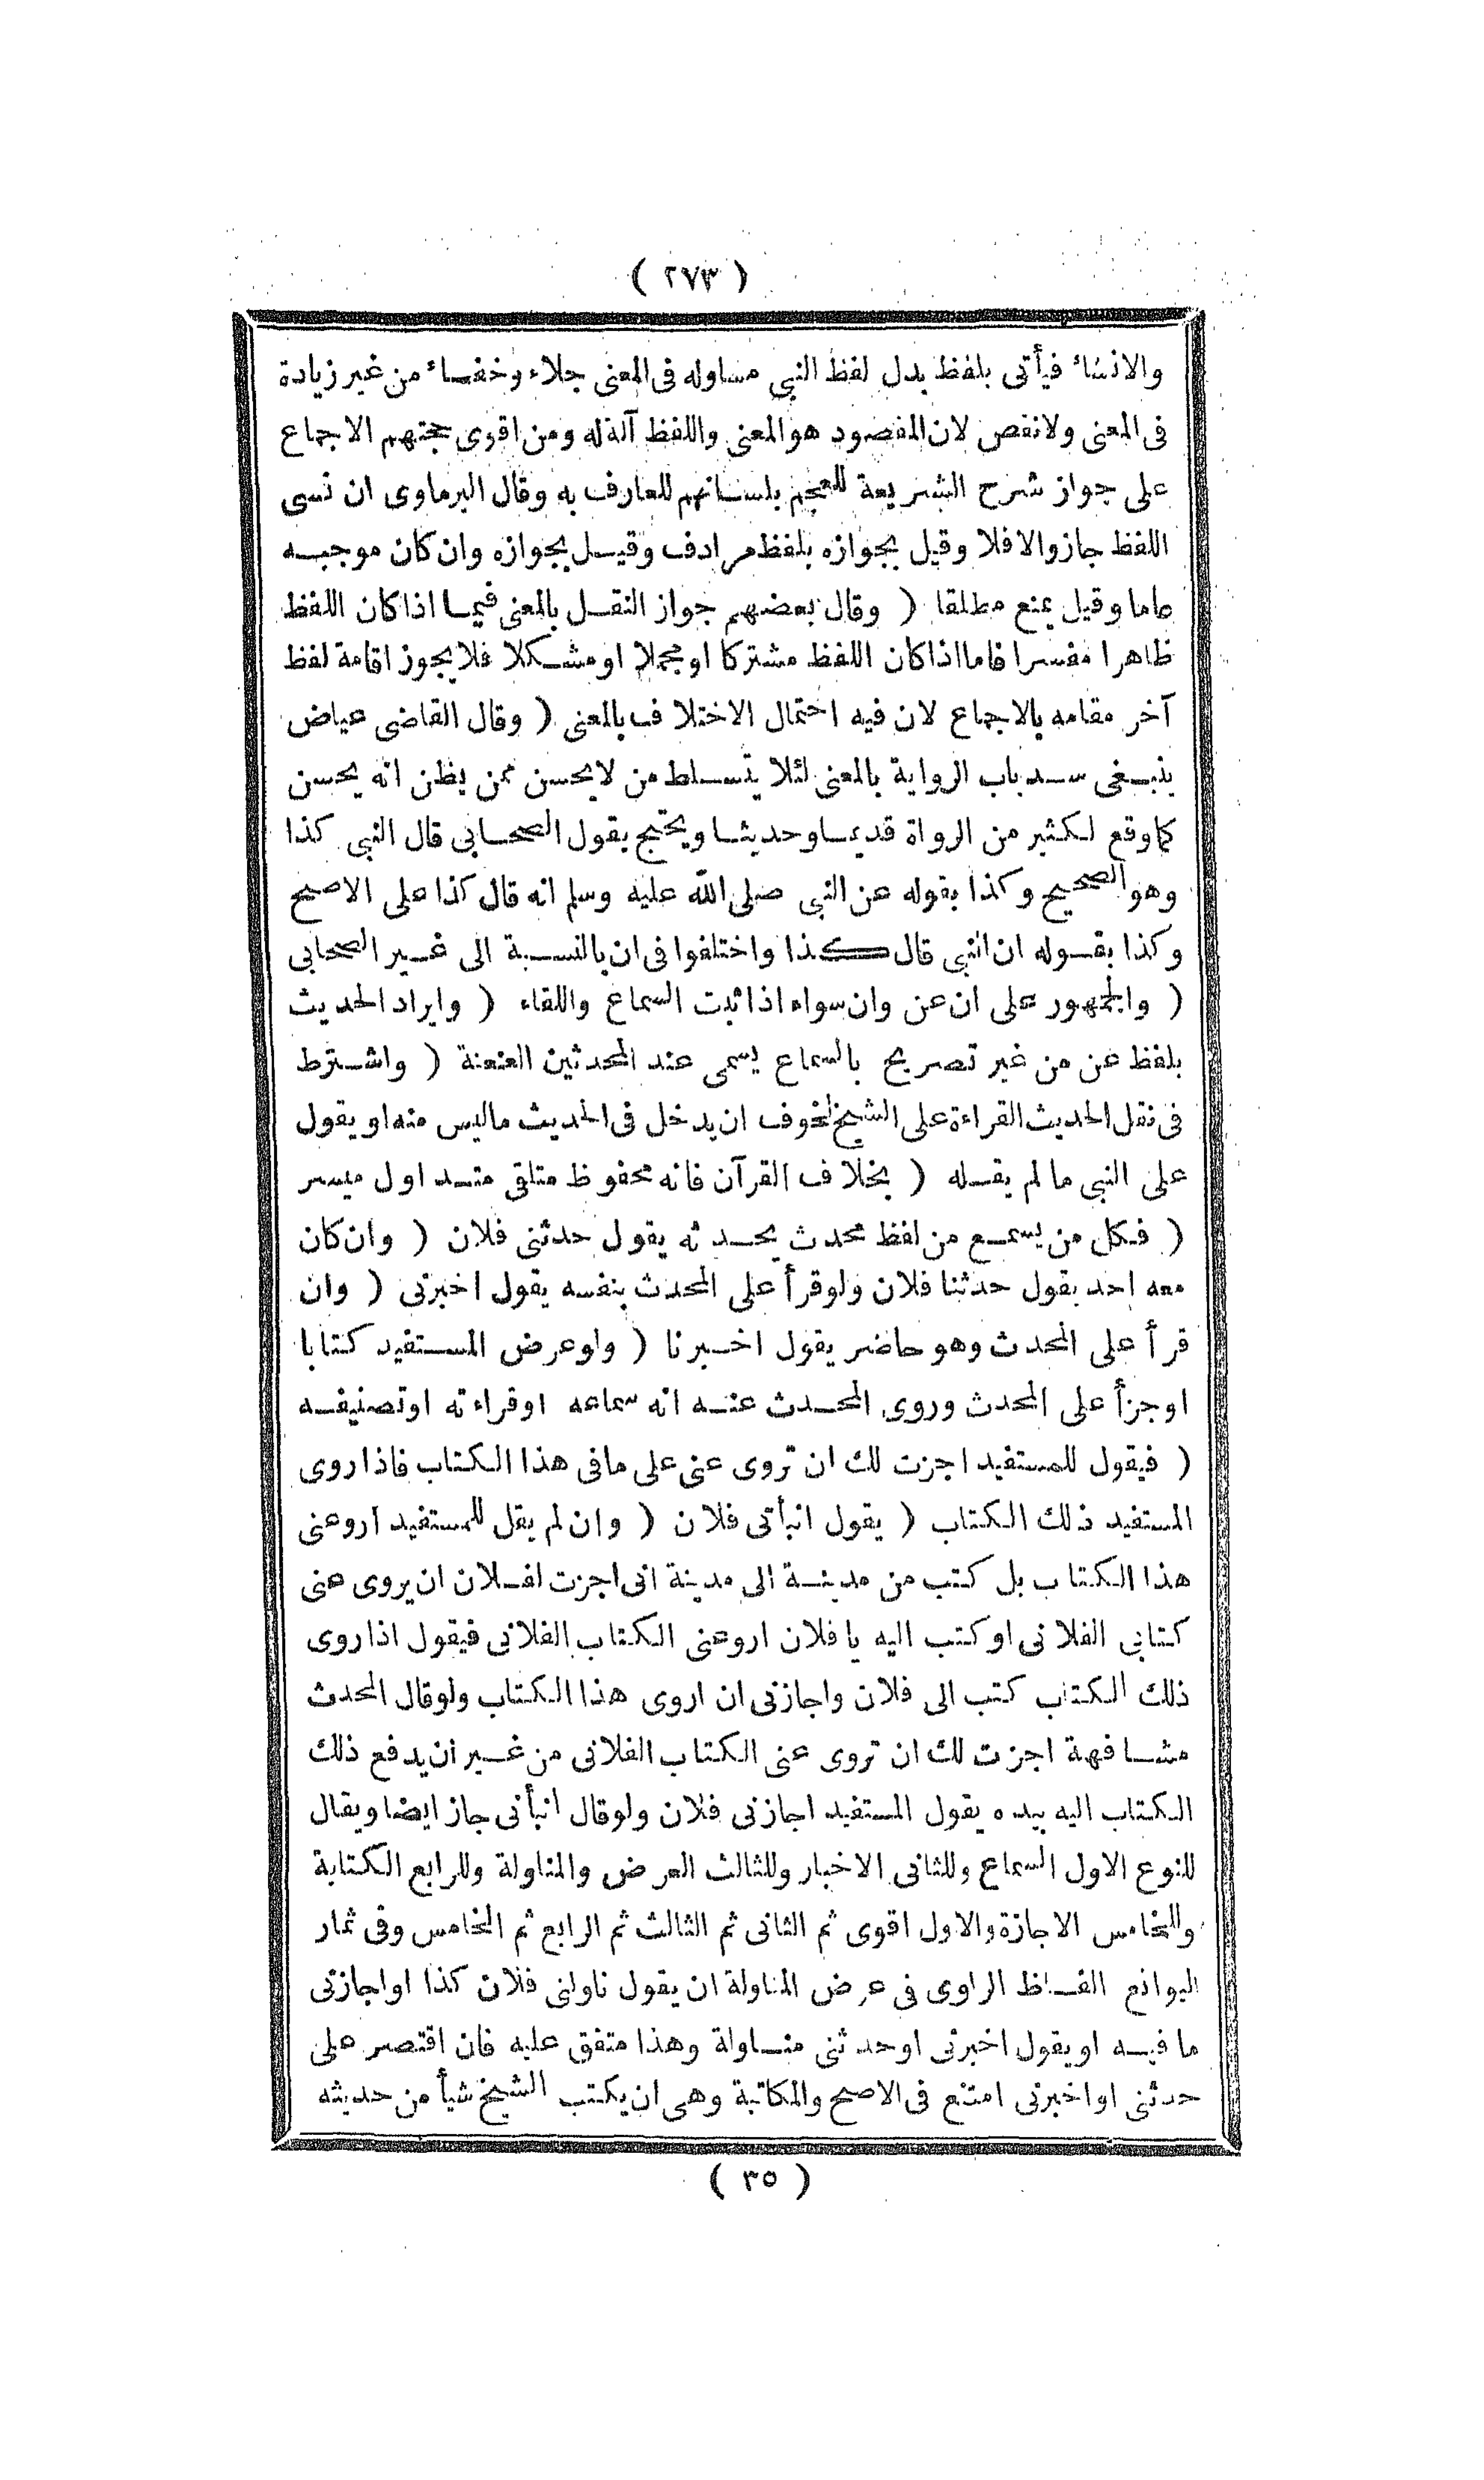 ( ٢٧٣ )
والانشاء فيأتى بلفظ بدل لفظ النبى مساوله فى المعنى جلاء وخفاء من غير زيادة
فى المعنى ولانقص لان المقصود هو المعنى واللفظ آلة له ومن اقوى حجتهم الاجماع
على جواز شرح الشريعة للعجم بلسانهم للعارف به وقال البرماوى ان نسى
اللفظ جاز والا فلا وقيل بجوازه بلفظ مرادف وقيل بجوازه وان كان موجبه
عاما وقيل يمنع مطلقا ( وقال بعضهم جواز النقل بالمعنى فيما اذا كان اللفظ
ظاهرا مفسرا فاما اذا كان اللفظ مشتركا او مجملا او مشكلا فلا يجوز اقامة لفظ
آخر مقامه بالاجماع لان فيه احتمال الاختلاف بالمعنى ( وقال القاضى عياض
ينبغى سد باب الرواية بالمعنى لئلا يتسلط من لا يحسن ممن يظن انه يحسن
كما وقع لكثير من الرواة قديما وحديثا ويحتج بقول الصحابى قال النبى كذا
وهو الصحيح وكذا بقوله عن النبى صلى الله عليه وسلم انه قال كذا على الاصح
وكذا بقوله ان النبى قال كذا واختلفوا فى ان بالنسبة الى غير الصحابى
( والجمهور على ان عن وان سواء اذا ثبت السماع واللقاء ( وايراد الحديث
بلفظ عن من غير تصريح بالسماع يسمى عند المحدثين العنعنة ( واشترط
فى نقل الحديث القراءة على الشيخ لخوف ان يدخل فى الحديث ماليس منه او يقول
على النبى ما لم يقله ( بخلاف القرآن فانه محفوظ متلقى متداول ميسر
( فكل من يسمع من لفظ محدث يحدثه يقول حدثنى فلان ( وان كان
معه احد يقول حدثنا فلان ولو قرأ على المحدث بنفسه يقول اخبرنى ( وان
قرأ على المحدث وهو حاضر يقول اخبرنا ( ولو عرض المستفيد كتابا
او جزأ على المحدث وروى المحدث عنه انه سماعه او قراءته او تصنيفه
( فيقول للمستفيد اجزت لك ان تروى عنى على مافى هذا الكتاب فاذا روى
المستفيد ذلك الكتاب ( يقول انبأنى فلان ( وان لم يقل للمستفيد اروعنى
هذا الكتاب بل كتب من مدينة الى مدينة انى اجزت لفلان ان يروى عنى
كتابى الفلانى او كتب اليه يا فلان اروعنى الكتاب الفلانى فيقول اذا روى
ذلك الكتاب كتب الى فلان واجازنى ان اروى هذا الكتاب ولوقال المحدث
مشافهة اجزت لك ان تروى عنى الكتاب الفلانى من غير ان يدفع ذلك
الكتاب اليه بيده يقول المستفيد اجازنى فلان ولوقال انبأنى جاز ايضا ويقال
للنوع الاول السماع وللثانى الاخبار وللثالث العرض والمناولة وللرابع الكتابة
والخامس الاجازة والاول اقوى ثم الثانى ثم الثالث ثم الرابع ثم الخامس وفى ثمار
اليوانع الفاظ الراوى فى عرض المناولة ان يقول ناولنى فلان كذا او اجازنى
ما فيه او يقول اخبرنى او حدثنى مناولة وهذا متفق عليه فان اقتصر على
حدثنى او اخبرنى امتنع فى الاصح والمكاتبة وهى ان يكتب الشيخ شيأ من حديثه
( ٣٥ )